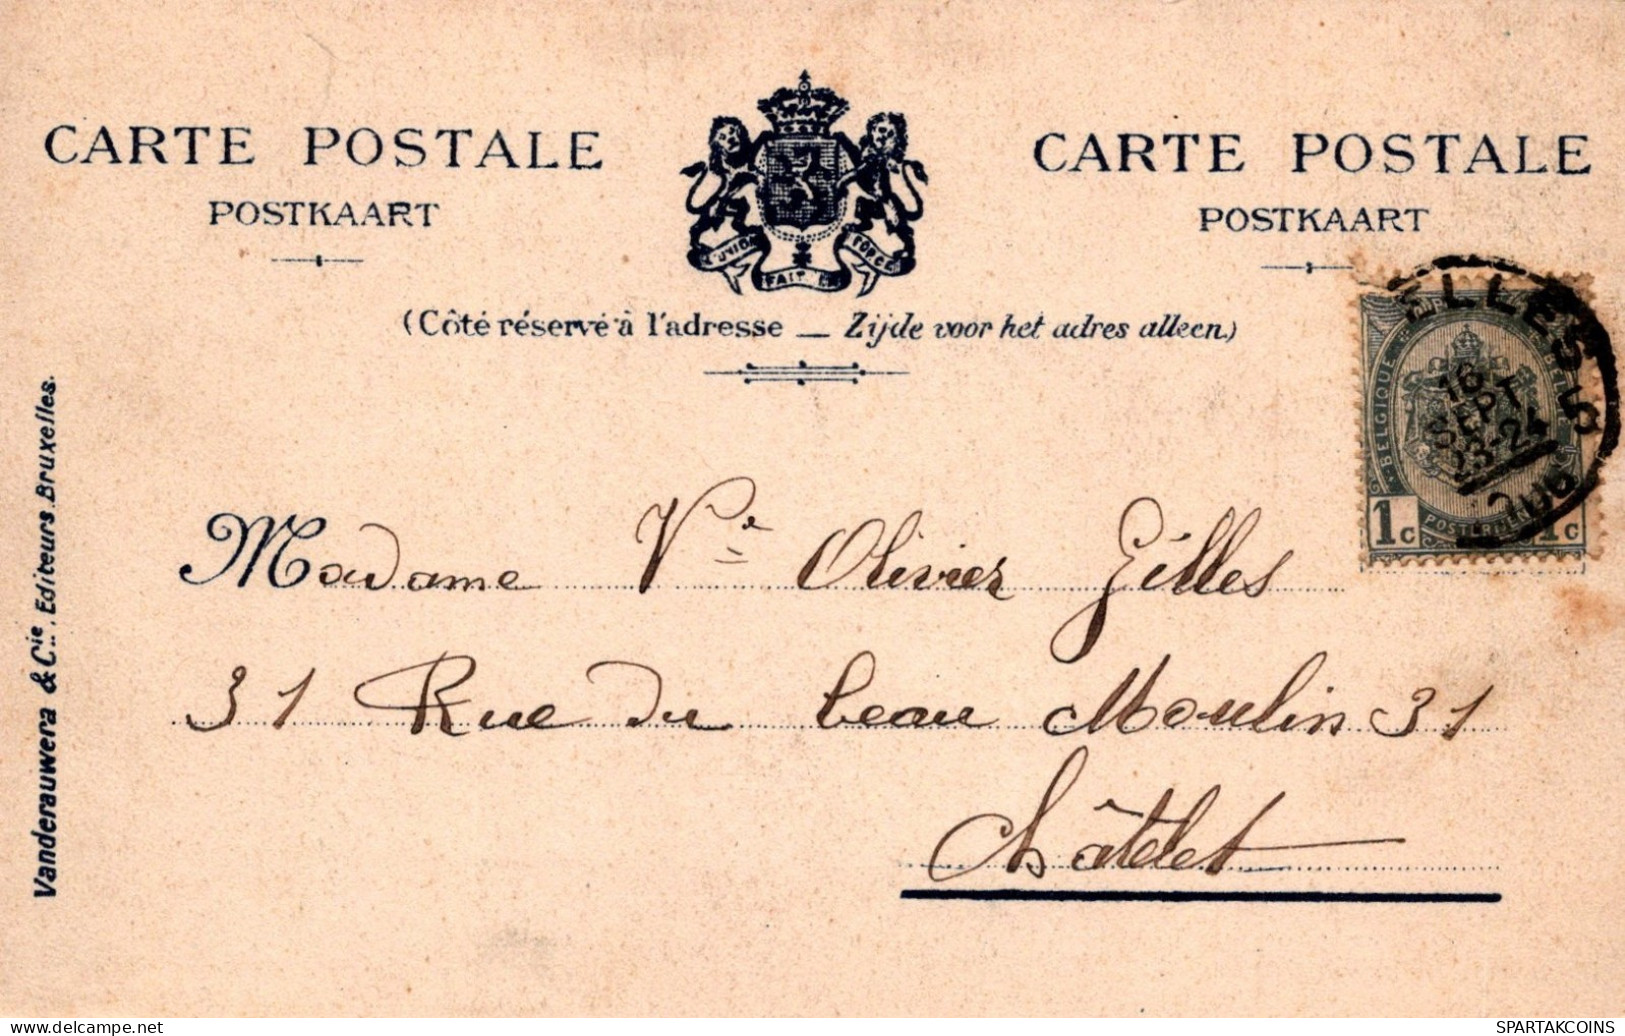 CARTE POSTALE
POSTKAART
CARTE POSTALE
POSTKAART
L'UNION FAIT LA FORCE
(Côté réservé à l'adresse — Zijde voor het adres alleen)
BELGIQUE
1c
1c
ELLES 5
16
SEPT
23-24
Madame Ve Olivier Gilles
31 Rue du beau Moulin 31
Châtelet
Vanderauwera & Cie, Editeurs Bruxelles.
delcampe.net
SPARTAKCOINS